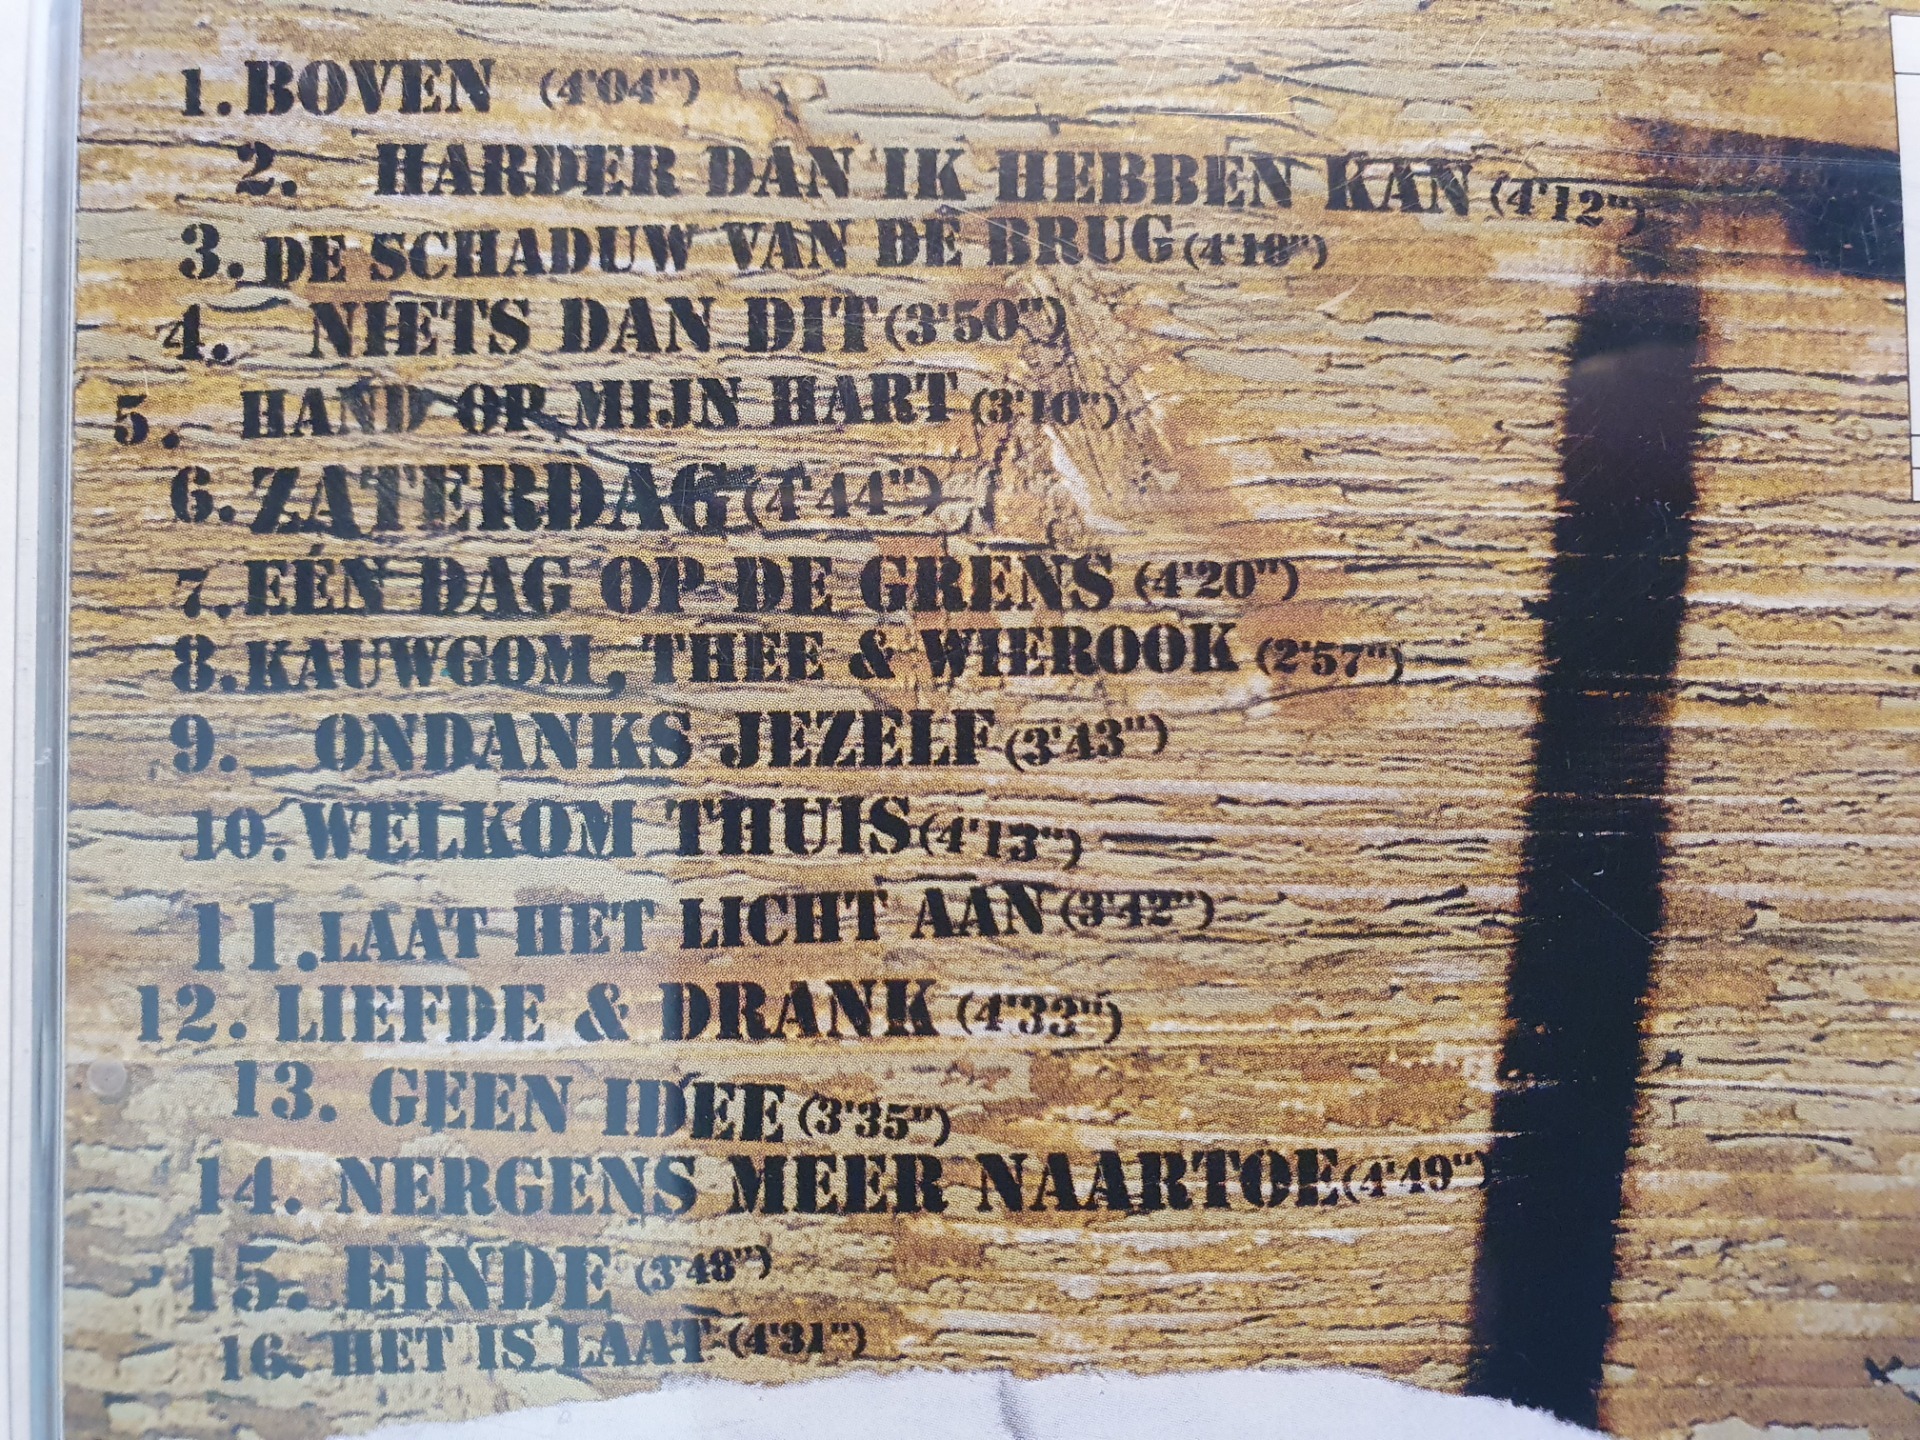 1. BOVEN (4'04")
2. HARDER DAN IK HEBBEN KAN (4'12")
3. DE SCHADUW VAN DE BRUG (4'18")
4. NIETS DAN DIT (3'50")
5. HAND OP MIJN HART (3'10")
6. ZATERDAG (4'44")
7. EÉN DAG OP DE GRENS (4'20")
8. KAUWGOM, THEE & WIEROOK (2'57")
9. ONDANKS JEZELF (3'43")
10. WELKOM THUIS (4'13")
11. LAAT HET LICHT AAN (3'42")
12. LIEFDE & DRANK (4'33")
13. GEEN IDEE (3'35")
14. NERGENS MEER NAARTOE (4'49")
15. EINDE (3'48")
16. HET IS LAAT (4'31")